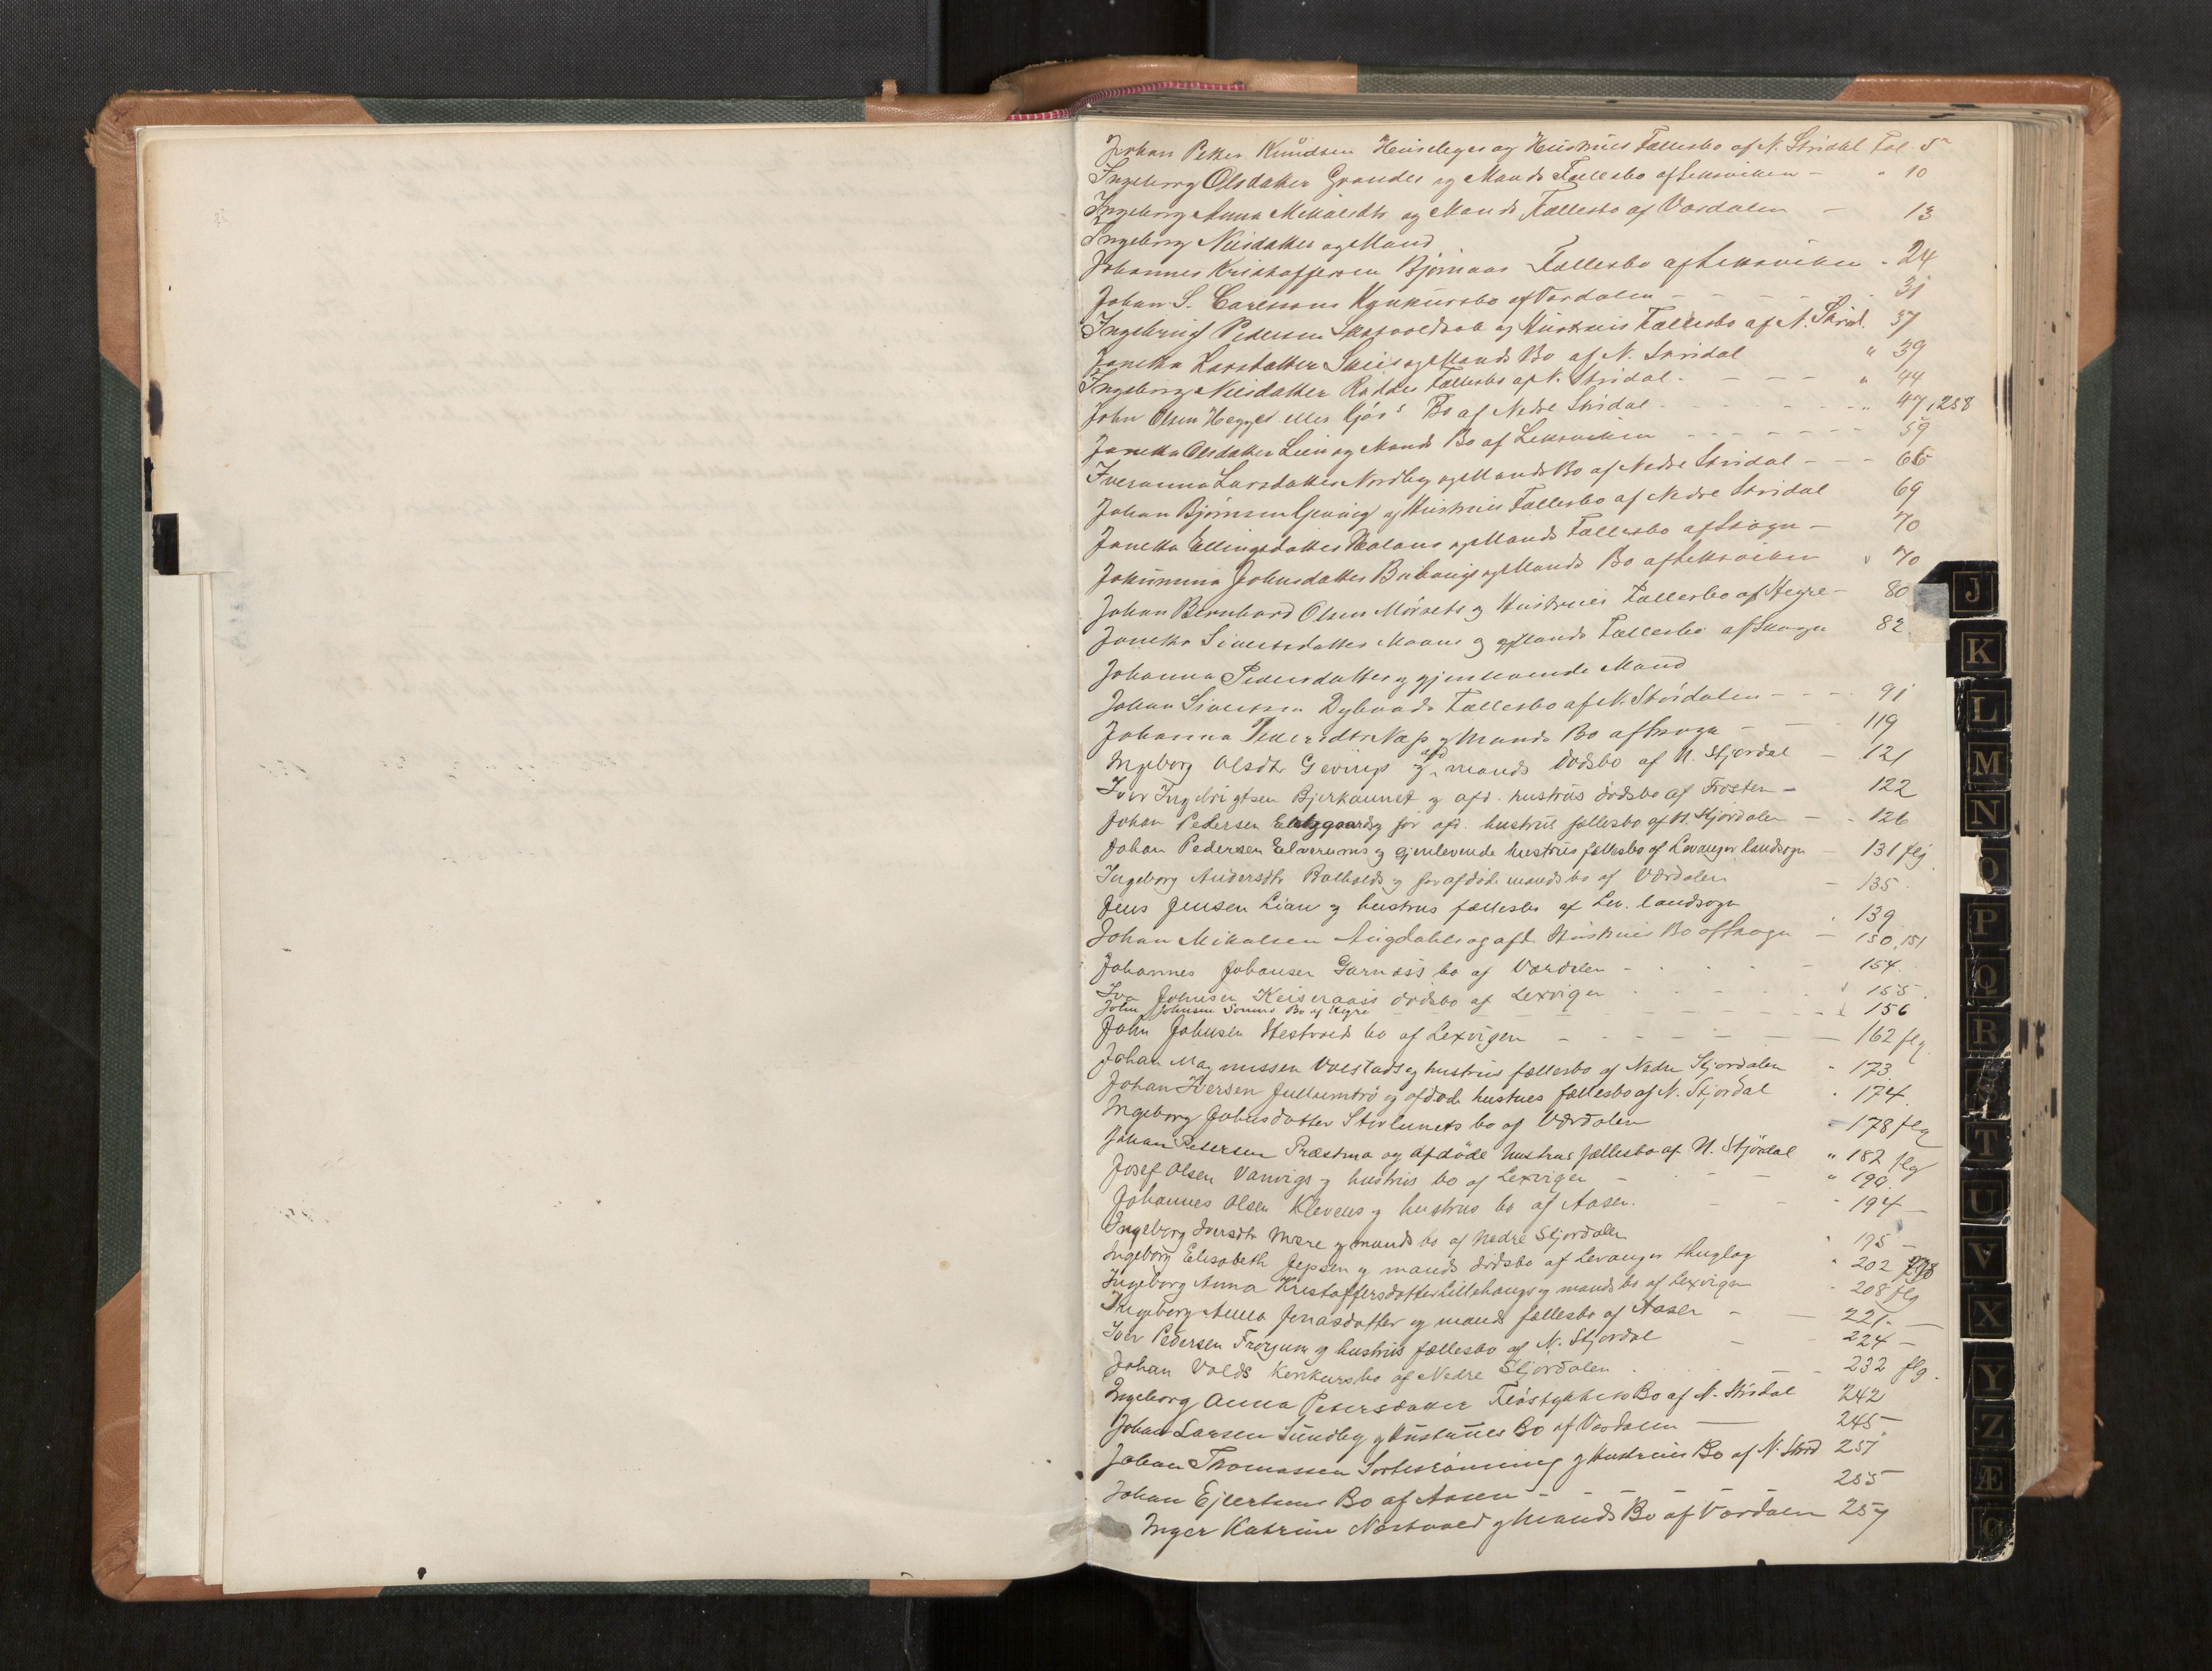 Johan Petter Knudsen Huseleges og Hustrues Fællesbo af N. Strdal Fol. 5
Ingeborg Olsdatter Grandes og Mands Fællesbo af Leksviken - " 10
Ingeborg Anna Mikalsdtr og Mands Fællesbo af Værdalen - 13
Ingeborg Nilsdatter og Mand
Johannes Kristoffersen Bjørnaas Fællesbo af Leksviken " 24
Johan S. Carlssons Konkursbo af Værdalen - - - 31
Ingebrigt Pedersen og Hustrues Fællesbo af N. Strdal. 37
Janetta Larsdatter og Mands Bo af N. Stridal " 39
Ingeborg Nilsdatter Fællesbo af N. Strdal - - - - " 44
John Olsen eller Bo af Nedre Strdal - - - - " 47, 258
Janetta Olsdatter Lien og Mands Bo af Leksviken - - - - - - 59
Iveranna Larsdatter Nordby og Mands Bo af Nedre Strdal - - - 66
Johan Bjørnsen og Hustrues Fællesbo af Nedre Strdal 69
Janetta Ellingsdatter og Mands Fællesbo af Skogn - 70
Johnsdatter og Mands Bo af Leksviken " 70
Johan Bernhard Olsen og Hustrues Fællesbo af Hegre - 80
Janetta Sivertsdatter og Mands Fællesbo af Skogn 82
Johanna Pedersdatter og gjenlevende Mand
Johan Sivertsen Dybvads Fællesbo af N. Strdalen - - - 91
Johanna og Mands Bo af Skogn - - - 119
Ingeborg Olsdtr Gevings og afd mands dødsbo af N. Stjordal - 121
Iver Ingebrigtsen Bjerkaunet og afd. hustrus dødsbo af Frosten - 122
Johan Pedersen og før afd. hustrus fællesbo af N. Stjørdalen - - 126
Johan Pedersen Elverums og gjenlevende hustrus fællesbo af Levanger landsogn - 131 flg.
Ingeborg Andersdtr Balholds og før afdøde mands bo af Værdalen - 135.
Jens Jensen Lian og hustrus fællesbo af Lev. landsogn . 139
Johan Mikalsen og afd. Hustrues Bo af Skogn - 150, 151
Johannes Johansen Garnæs's bo af Værdalen - - - - - 154.
Johnsen Keiseraas's dødsbo af Lexvigen - - - - 155.
John Johnsen Bo af Hegre - - - - - - - - - 156
John Johnsen bo af Lexvigen - - - - - - 162 flg
Johan Magnussen og hustrus fællesbo af Nedre Stjordalen " 173
Johan Iversen og afdøde hustrues fællesbo af N. Stjordal " 174.
Ingeborg Johnsdatter bo af Værdalen - 178 flg
Johan Petersen Præstmo og afdøde hustrus fællesbo af N. Stjördal " 182 flg
Josef Olsen Vanvigs og hustrus bo af Lexvigen - - - - " 190.
Johannes Olsen Klevens og hustrus bo af Aasen. - - - 194 -
Ingeborg Iversdtr Mære og mands bo af Nedre Stjordalen " 195 -
Ingeborg Elisabeth Jepsen og mands dødsbo af Levanger thinglag " 202
Ingeborg Anna Kristoffersdatter Lillehaugs og mands bo af Lexvigen - 208 flg
Ingeborg Anna Jonasdatter og mands fællesbo af Aasen - - 221. -
Iver Pedersen og hustrus fællesbo af N. Stjordal - 224 -
Johan Volds konkursbo af Nedre Stjordalen . . . - - 232 flg.
Ingeborg Anna Petersdatter Bo af N. Strdal 242
Johan Larsen Sundby og Hustrues Bo af Værdalen — 245
Johan Thomassen og Hustrues Bo af N. Strd 251
Johan Ejlertsens Bo af Aasen - - - - 255
Inger Katrine og Mands Bo af Værdalen 257
J
K
L
M
N
O
P
Q
R
S
T
U
V
X
Y
Z
Æ
Ø